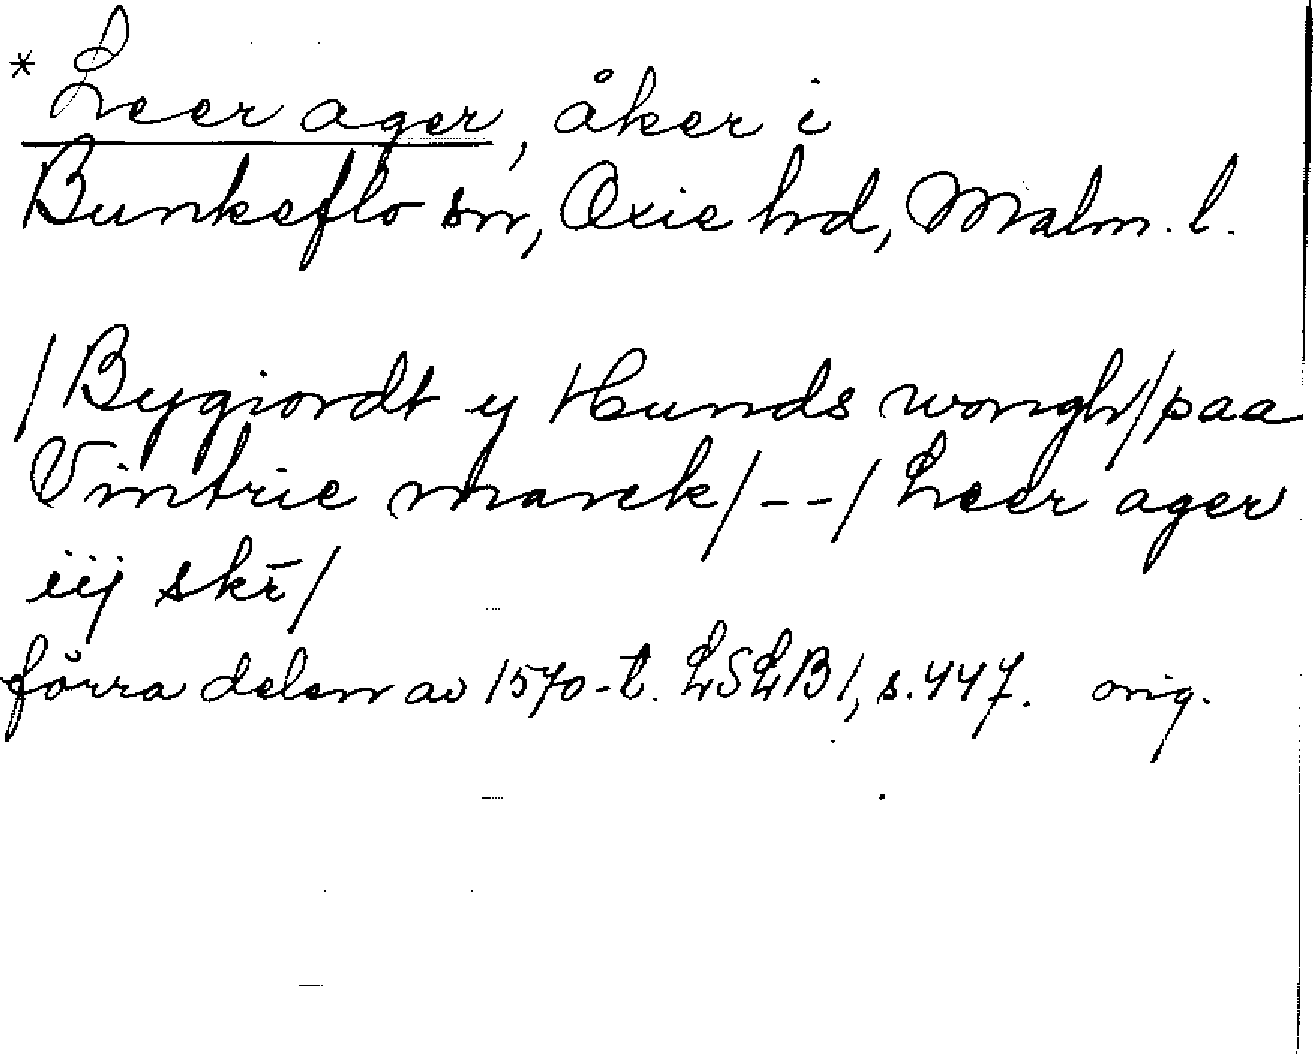 * Leer ager, åker i
Bunkeflo sn, Oxie hd, Malm. l.
/Bygiordt y Hunds wongh/paa
Vintrie marck/--/Leer ager
iij skr̄/
förra delen av 1570-t. LSLB 1, s. 447. orig.